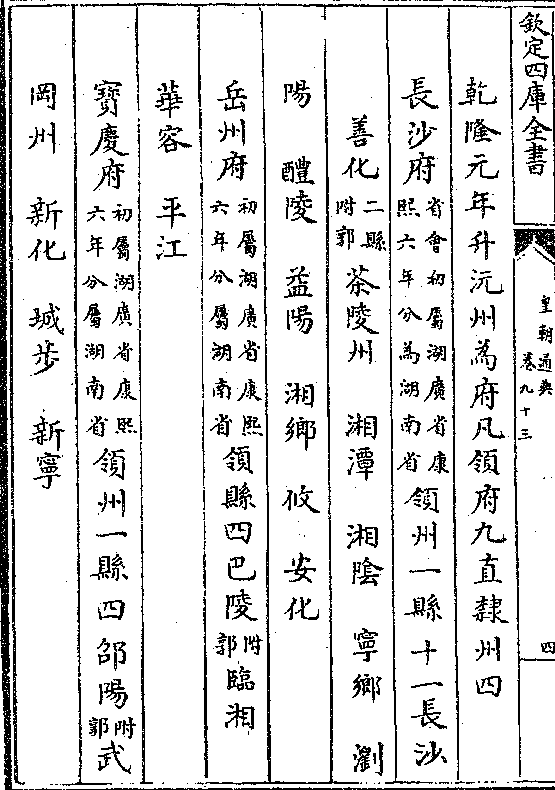 欽定四庫全書
皇朝通典
卷九十三
四
乾隆元年升沅州為府凡領府九直隸州四
長沙府省會初屬湖廣省康熙六年分為湖南省領州一縣十一長沙
善化二縣附郭茶陵州 湘潭 湘陰 寧鄉 瀏
陽 醴陵 益陽 湘鄉 攸 安化
岳州府初屬湖廣省康熙六年分屬湖南省領縣四巴陵附郭臨湘
華容 平江
寶慶府初屬湖廣省康熙六年分屬湖南省領州一縣四邵陽附郭武
岡州 新化 城步 新寧